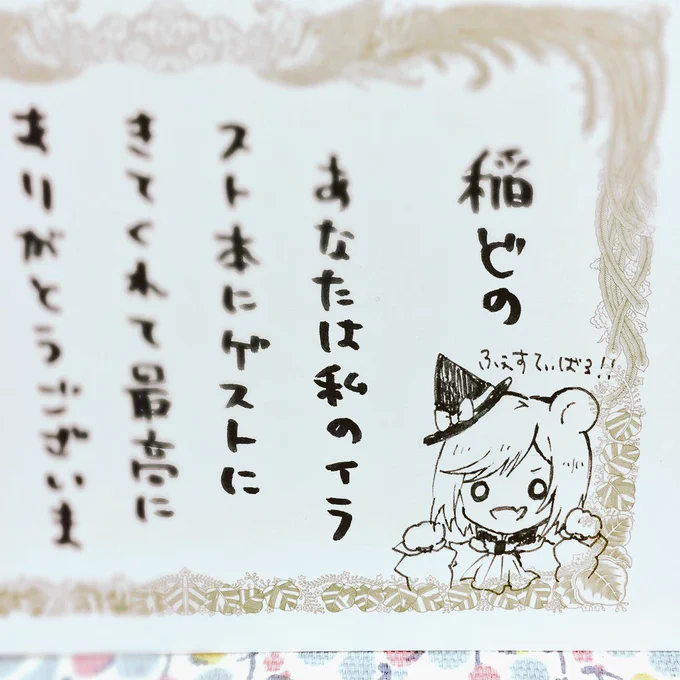 稲どの
あなたは私のイラ
スト本にゲストに
きてくれて最高に
ありがとうございま
ふぇすてぃばる!!